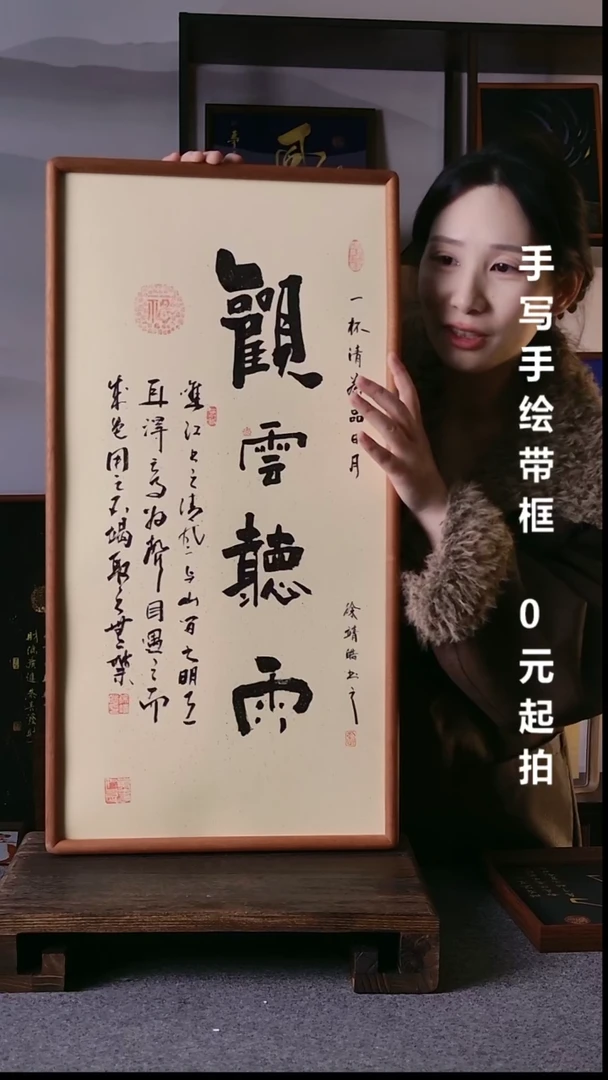 手写手绘带框 0元起拍
一杯清茶品日月
觀雲聽雨
唯江上之清风与山间之明月
耳得之为聲目遇之而
成色用之不竭取之無禁
福